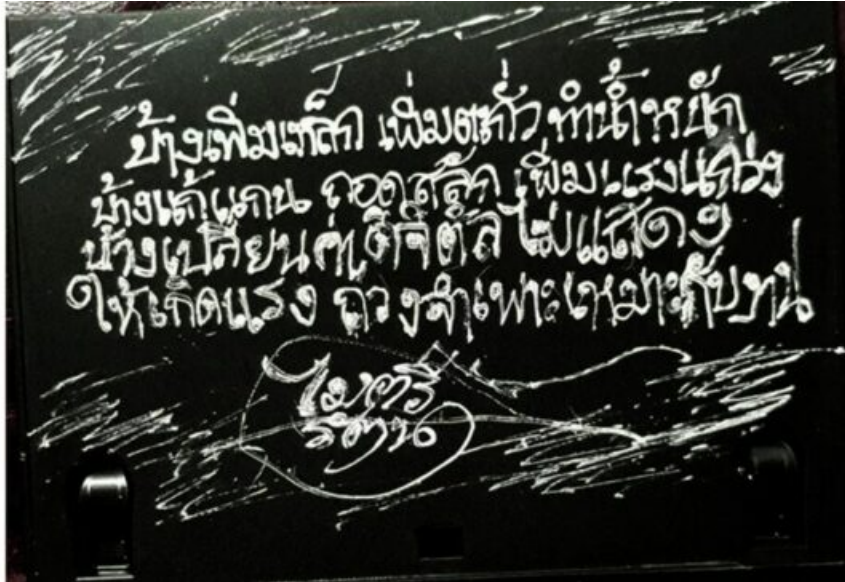 บ้างเพิ่มเหล็ก เพิ่มตะกั่ว ทำน้ำหนัก
บ้างแก้แกน ถอดสลัก เพิ่มแรงแกว่ง
บ้างเปลี่ยน ดิจิตัล ไม่แสดง
ให้เกิดแรง ถ่วงจำเพาะเหมาะกับ
ไมตรี